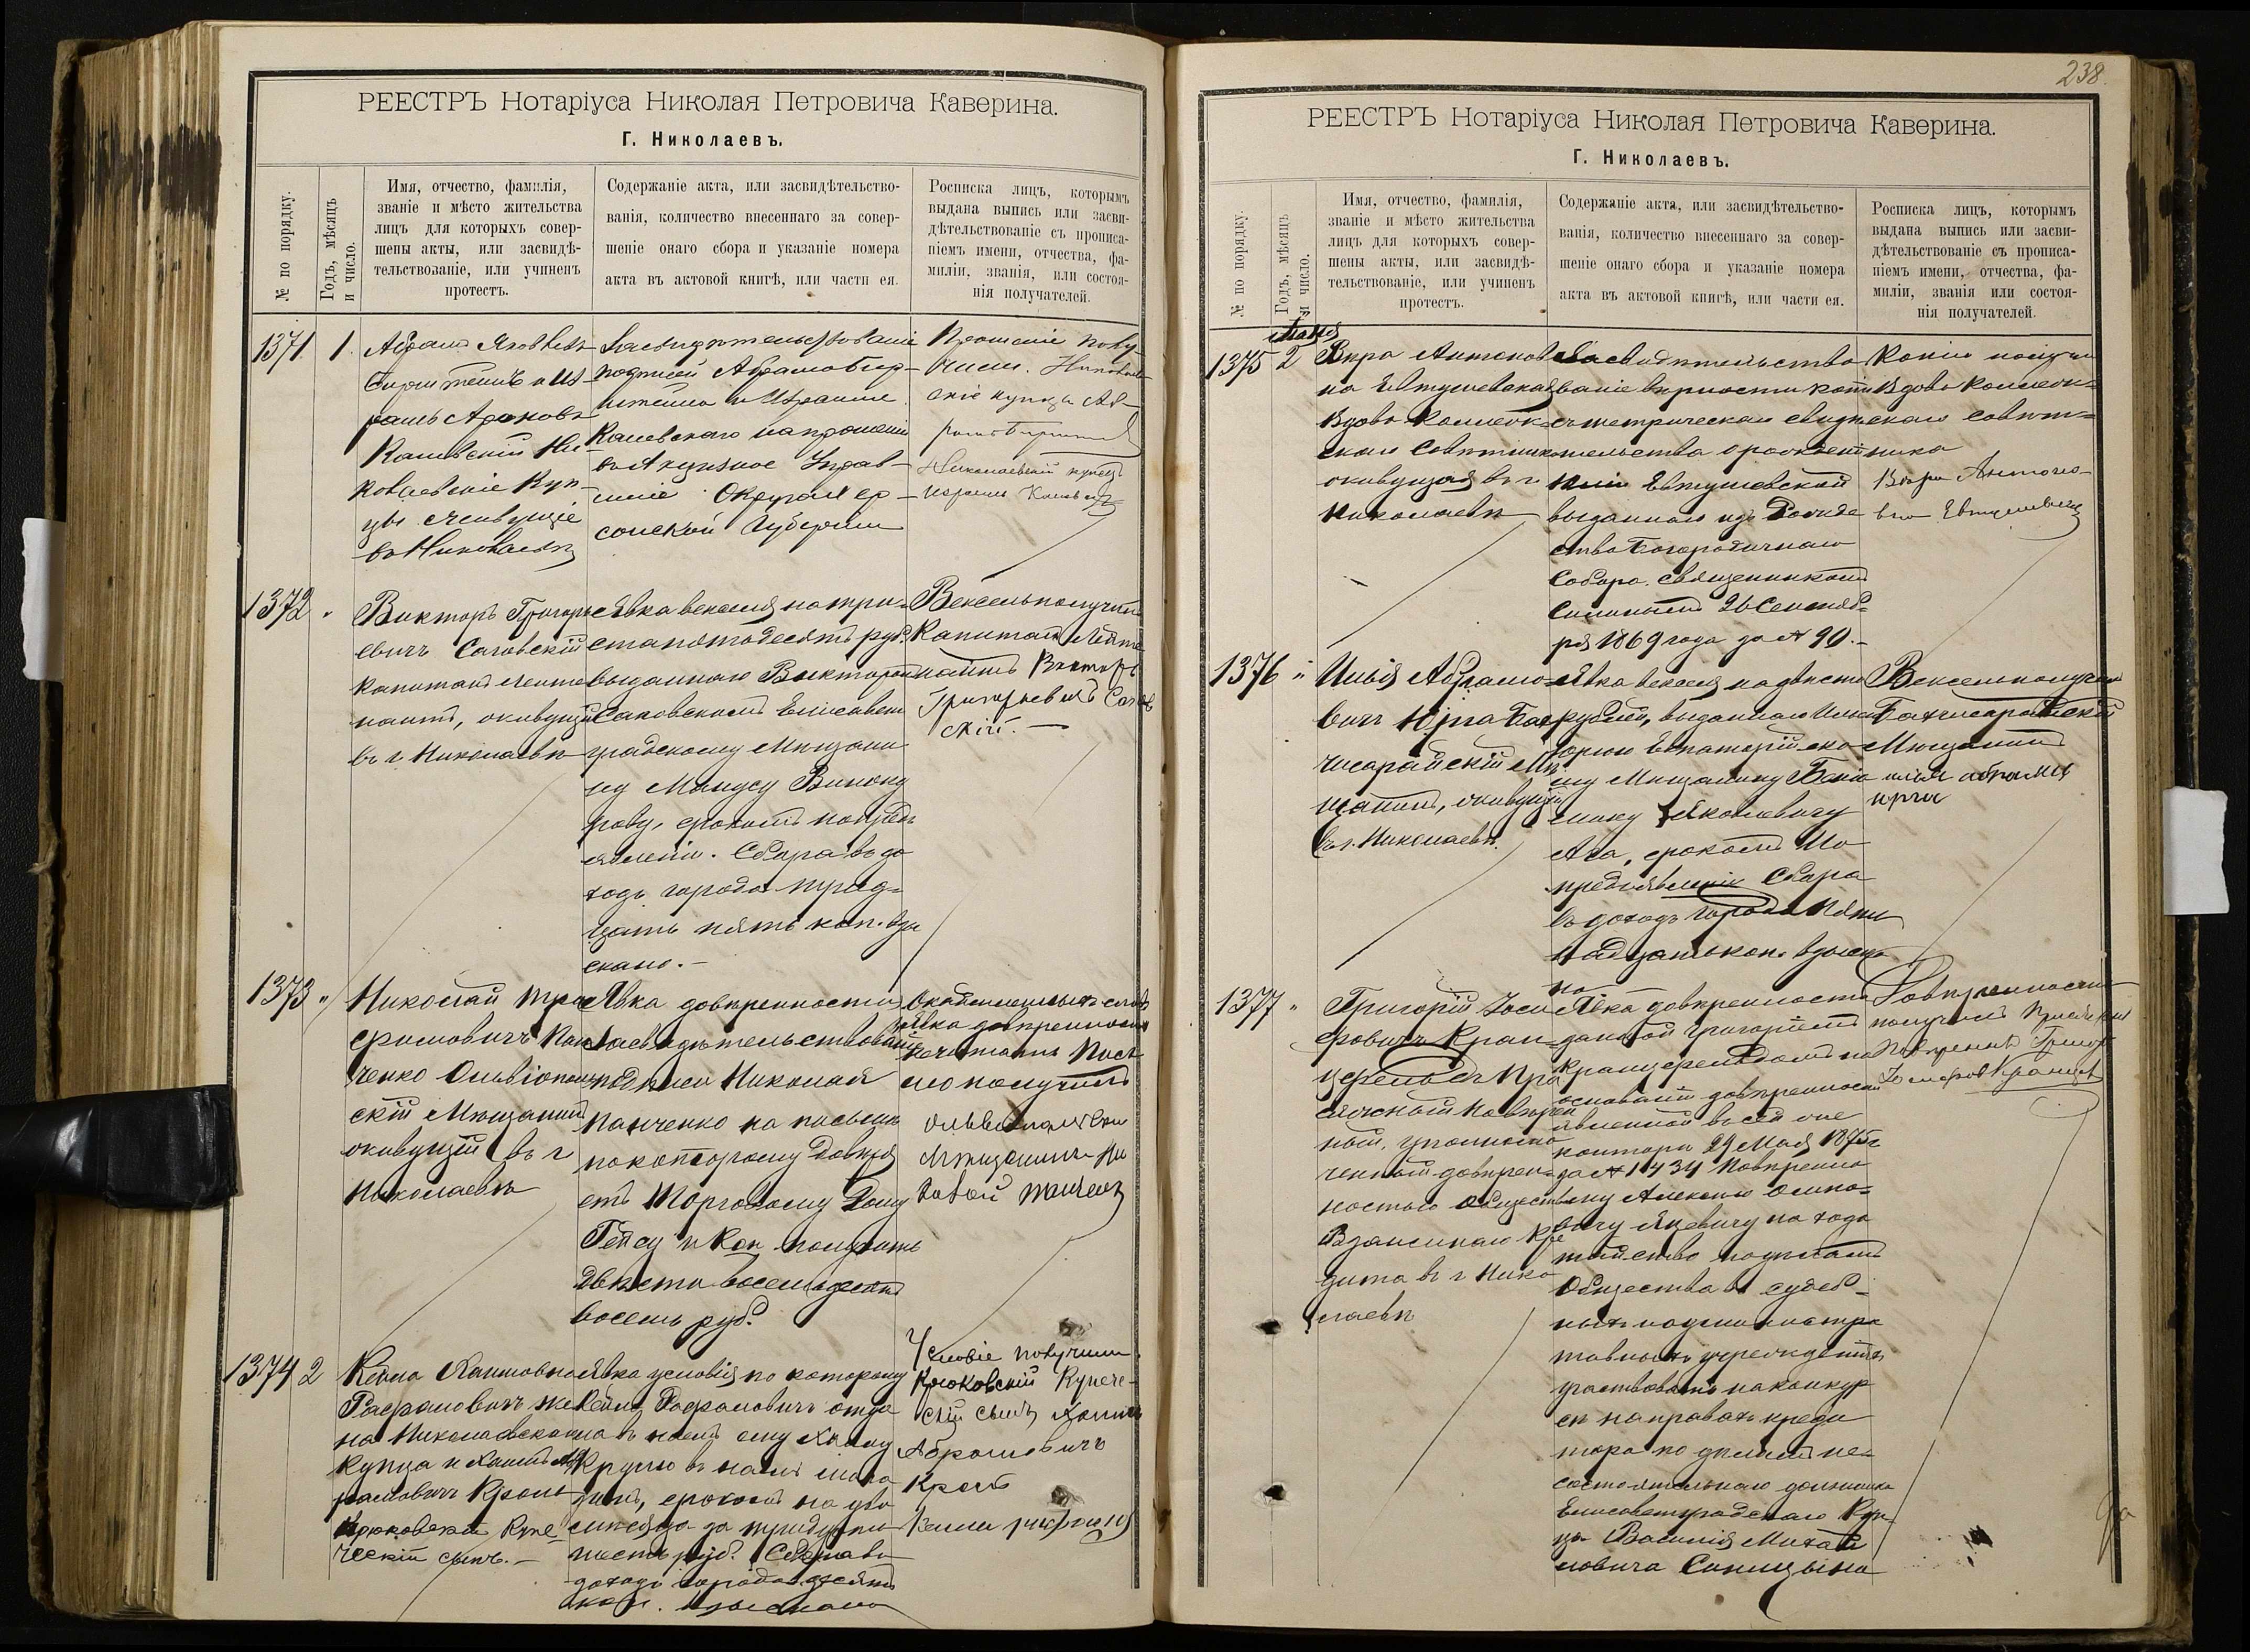 РЕЕСТРЪ Нотаріуса Николая Петровича Каверина.
Г. Николаевъ.
№ по порядку.
Годъ, мѣсяцъ
и число.
Имя, отчество, фамилія,
званіе и мѣсто жительства
лицъ для которыхъ совер-
шены акты, или засвидѣ-
тельствованіе, или учиненъ
протестъ.
Содержаніе акта, или засвидѣтельство-
ванія, количество внесеннаго за совер-
шеніе онаго сбора и указаніе номера
акта въ актовой книгѣ, или части ея.
Росписка лицъ, которымъ
выдана выпись или засви-
дѣтельствованіе съ прописа-
ніемъ имени, отчества, фа-
миліи, званія, или состоя-
нія получателей.
1371 1.
Абрамъ Яковлевъ
и Из-
раиль Ароновъ
Каневскій Ни-
колаевскіе Куп-
цы живущіе
въ Николаевѣ
Засвидѣтельствованіе
подписей Абрама Бир-
штейна и Израиля
Каневскаго на прошеніи
въ Акцизное Управ-
леніе Округа Хер-
сонской Губерніи
Прошеніе полу-
чили. Николаев-
скіе купцы Аб-
рамъ
Николаевскій купецъ
Израиль
1372 "
Викторъ Григорь
евичъ Саговскій
Капитанъ Лейте
нантъ, живущій
въ г Николаевѣ
Явка векселя на три-
ста пятьдесятъ руб.
выданнаго Викторомъ
Саговскимъ Елисавет
градскому Мѣщани
ну Мандусу Виноку
рову, срокомъ по предъ
явленіи. Сбора въ до
ходъ города трид-
цать пять коп. взы
скано.-
Вексель получилъ
Капитанъ Лейте
нантъ Викторъ
Григорьевичъ Сагов
скій.-
1373 "
Николай Тро
фимовичъ Пан
ченко Ольвіополь
скій Мѣщанинъ
живущій въ г
Николаевѣ
Явка довѣренности
Засвидѣтельствованіе
подписи Николая
Панченко на письмѣ
по которому довѣря
етъ Торговому Дому
Гейсу и Кон получить
двѣсти восемьдесятъ
восемь руб.
словъ
Явка довѣренности
не читать Пись
мо получилъ
Мѣщанинъ Ни
колай Панченко
1374 2
Кейла Хаимовна
Рафаловичъ же
на Николаевскаго
купца и Хаимъ Аб
рамовичъ Кронъ
Крюковскій Купе
ческій сынъ.-
Явка условія по которому
Кейла Рафаловичъ отда
ла въ наемъ ему Хаиму
Крону въ наемъ мага
зинъ, срокомъ на два
мѣсяца за тридцать
шесть руб. Сбора въ
доходъ города десять
коп. взыскано
Условіе получилъ
Крюковскій Купече-
скій сынъ Хаимъ
Абрамовичъ
Кронъ
Кейла Рафаловичъ
238.
РЕЕСТРЪ Нотаріуса Николая Петровича Каверина.
Г. Николаевъ.
№ по порядку.
Годъ, мѣсяцъ
и число.
Имя, отчество, фамилія,
званіе и мѣсто жительства
лицъ для которыхъ совер-
шены акты, или засвидѣ-
тельствованіе, или учиненъ
протестъ.
Содержаніе акта, или засвидѣтельство-
ванія, количество внесеннаго за совер-
шеніе онаго сбора и указаніе номера
акта въ актовой книгѣ, или части ея.
Росписка лицъ, которымъ
выдана выпись или засви-
дѣтельствованіе съ прописа-
ніемъ имени, отчества, фа-
миліи, званія или состоя-
нія получателей.
1375 2
Вѣра Антонов
на Евтушевская
Вдова Коллеж-
скаго Совѣтника
живущая въ г
Николаевѣ
Засвидѣтельство
ваніе вѣрности копіи
съ метрическаго свидѣ
тельства о рожденіи
Евтушевской
выданнаго изъ Рожде
ство Богородичнаго
Собора священникомъ
26 Сентяб-
ря 1869 года за № 90.-
Копію получила
Вдова Коллеж-
скаго Совѣт-
ника
Вѣра Антоно-
вна Евтушевская
1376 "
Илья Абрамо-
вичъ Юрга Бах
чисарайскій Мѣ
щанинъ, живущій
въ г. Николаевѣ.
Явка векселя на двѣсти
рублей, выданнаго Ильею
Юргою Евпаторійско
му Мѣщанину Бенія
мину Яковлевичу
Ага, срокомъ по
предъявленіи Сбора
въ доходъ города пят
надцать коп. взыскано
Вексель получилъ
Бахчисарайскій
Мѣщанинъ
илья абрамъ
юрга
1377 "
Григорій Іоси
фовичъ Кран-
цфельдъ При
сяжный Повѣрен
ный, уполномо
ченный довѣрен-
ностью Общества
Взаимнаго Кре
дита въ г Нико
лаевѣ
Явка довѣренности
данной Григоріемъ
Кранцфельдомъ на
основаніи довѣренности
явленной въ сей же
конторѣ 29 Мая 1875 г
за № 1434 Повѣренно
му Алексѣю Осипо-
вичу Яцевичу на хода
тайство по дѣламъ
Общества въ судеб-
ныхъ и администра
тивныхъ учрежденіяхъ
участвовать на конкур
сѣ на правахъ креди
тора по дѣламъ не-
состоятельнаго должника
Елисаветградскаго Куп-
ца Василія Михай
ловича Синицына
Довѣренность
получилъ Присяжный
Повѣренный Григор